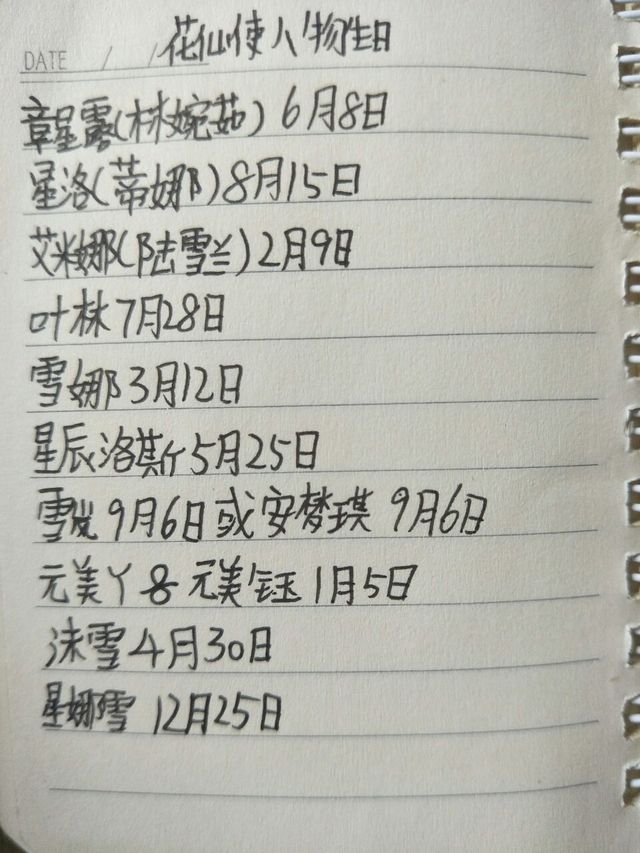 DATE / / 花仙使人物生日
章星露(林婉茹) 6月8日
星洛(蒂娜)8月15日
艾米娜(陆雪兰)2月9日
叶林7月28日
雪娜3月12日
星辰洛斯5月25日
雪岚9月6日或安梦琪 9月6日
元美丫&元美钰1月5日
沫雪4月30日
星娜雪 12月25日